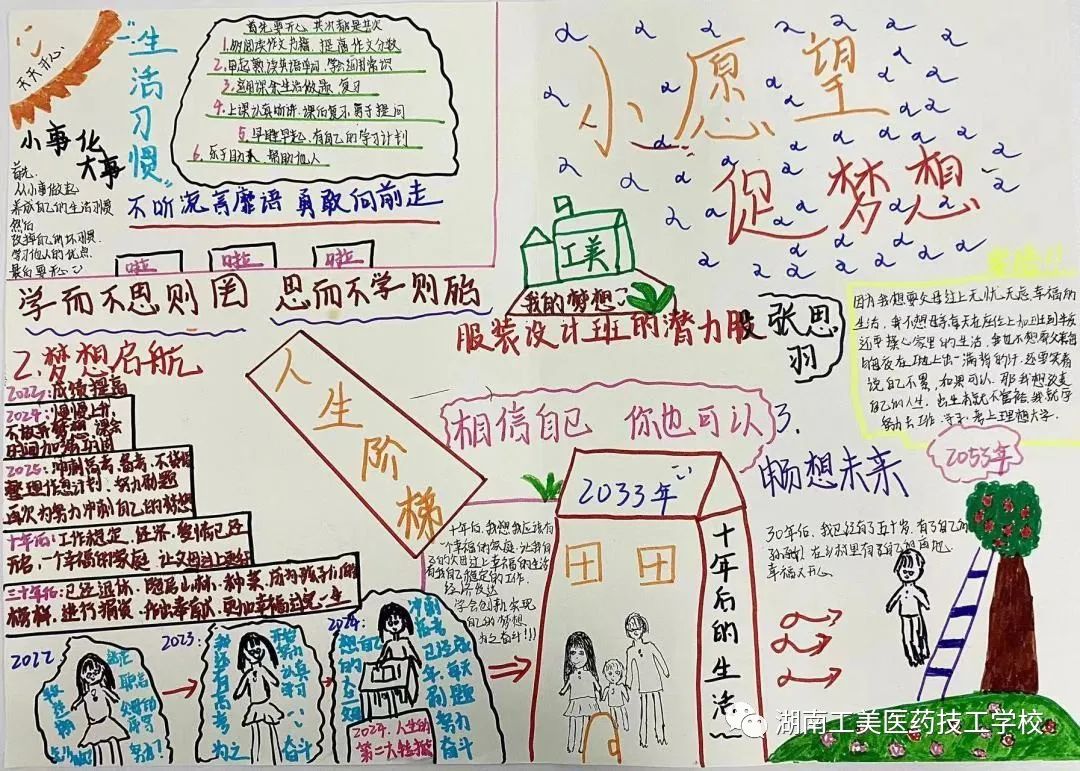 天天开心
"生活习惯"
小事化大事
首先:
从小事做起
养成自己的生活习惯
然后
改掉自己的坏习惯.
学习他人的优点.
最后要开心
首先要开心 其次都是其次
1.明阅读作文书籍 提高作文分数
2.早起熟读英语单词
3.空闲课余生活做题、复习
4.上课认真听讲.课后复习.勇于提问
5.早睡早起.有自己的学习计划
6.乐于助人 帮助他人
不听流言靡语 勇敢向前走
啦 啦 啦
学而不思则罔 思而不学则殆
小愿望
促梦想
工美
我的梦想
服装设计班的潜力股
张思羽
因为我想要父母过上无忧无虑幸福的
生活,我不想母亲每天在座位上加班到半夜
还要操心家里的生活,我也不想要父亲每
说自己不累,如果可以,那我想改变
自己的人生,出生来就不富裕,我就学
努力去工作.学习.考上理想大学.
2.梦想启航
2022:成绩提高
2024:慢慢上升,
不放弃梦想,课余
时间加努力时间
2025:冲刺高考、备考、不放假
整理作息计划、努力刷题
再次为努力冲刺自己的梦想
十年后:工作稳定,经济、爱情已经
开启,一个幸福的家庭,让父母过上更好
三十年后:已经退休,隐居山林,种菜,成为孩子们的
榜样,进行捐资
人生阶梯
相信自己 你也可以
3.畅想未来
2053年
2033年
十年后的生活
十年后,我想我应该有
一个幸福的家庭,让我自
己的父母过上幸福的生活
有我自己稳定的工作.
经济发达
学会创新,实现
自己的梦想.
为之奋斗!!!
30年后,我已经有了五十岁,有了自己的
孙辈!在乡村里有了自己的田地
幸福又开心
2022
2023:
2024:
冲刺
2024,人生的
第二大转折
湖南工美医药技工学校